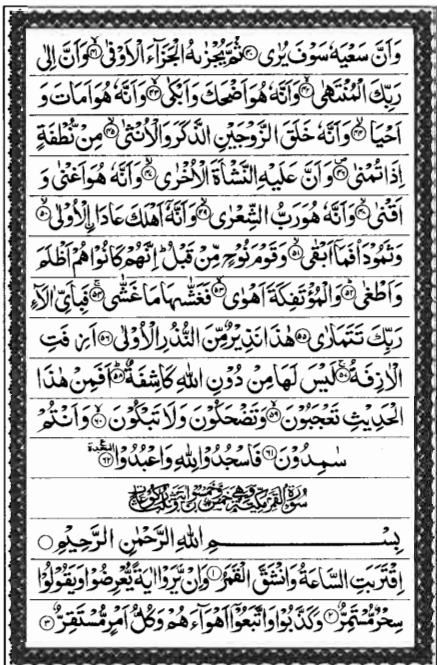 وَاَنَّ سَعۡيَهٗ سَوۡفَ يُرٰى ۴۰ ثُمَّ يُجۡزٰىهُ الۡجَزَآءَ الۡاَوۡفٰى ۴۱ وَاَنَّ اِلٰى
رَبِّكَ الۡمُنۡتَهٰى ۴۲ وَاَنَّهٗ هُوَ اَضۡحَكَ وَاَبۡكٰى ۴۳ وَاَنَّهٗ هُوَ اَمَاتَ وَ
اَحۡيَا ۴۴ وَاَنَّهٗ خَلَقَ الزَّوۡجَيۡنِ الذَّكَرَ وَالۡاُنۡثٰى ۴۵ مِنۡ نُّطۡفَةٍ
اِذَا تُمۡنٰى ۴۶ وَاَنَّ عَلَيۡهِ النَّشۡاَةَ الۡاُخۡرٰى ۴۷ وَاَنَّهٗ هُوَ اَغۡنٰى وَ
اَقۡنٰى ۴۸ وَاَنَّهٗ هُوَ رَبُّ الشِّعۡرٰى ۴۹ وَاَنَّهٗۤ اَهۡلَكَ عَادَا۟ اِ۟لۡاُوۡلٰى ۵۰
وَثَمُوۡدَا۟ فَمَاۤ اَبۡقٰى ۵۱ وَقَوۡمَ نُوۡحٍ مِّنۡ قَبۡلُ ؕ اِنَّهُمۡ كَانُوۡا هُمۡ اَظۡلَمَ
وَاَطۡغٰى ۵۲ وَالۡمُؤۡتَفِكَةَ اَهۡوٰى ۵۳ فَغَشّٰىهَا مَا غَشّٰى ۵۴ فَبِاَىِّ اٰلَآءِ
رَبِّكَ تَتَمَارٰى ۵۵ هٰذَا نَذِيۡرٌ مِّنَ النُّذُرِ الۡاُوۡلٰى ۵۶ اَزِفَتِ
الۡاٰزِفَةُ ۵۷ لَيۡسَ لَهَا مِنۡ دُوۡنِ اللّٰهِ كَاشِفَةٌ ۵۸ اَفَمِنۡ هٰذَا
الۡحَدِيۡثِ تَعۡجَبُوۡنَ ۵۹ وَتَضۡحَكُوۡنَ وَلَا تَبۡكُوۡنَ ۶۰ وَاَنۡتُمۡ
سٰمِدُوۡنَ ۶۱ فَاسۡجُدُوۡا لِلّٰهِ وَاعۡبُدُوۡا ۶۲ السجدة
سورة القمر مكية
بِسۡمِ اللّٰهِ الرَّحۡمٰنِ الرَّحِيۡمِ
اِقۡتَرَبَتِ السَّاعَةُ وَانۡشَقَّ الۡقَمَرُ ۱ وَاِنۡ يَّرَوۡا اٰيَةً يُّعۡرِضُوۡا وَيَقُوۡلُوۡا
سِحۡرٌ مُّسۡتَمِرٌّ ۲ وَكَذَّبُوۡا وَاتَّبَعُوۡۤا اَهۡوَآءَهُمۡ وَكُلُّ اَمۡرٍ مُّسۡتَقِرٌّ ۳